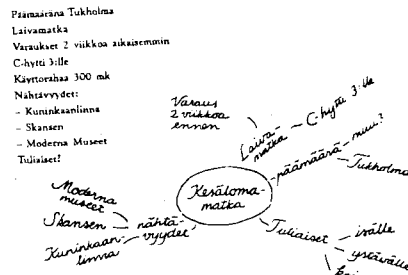 Päämääränä Tukholma
Laivamatka
Varaukset 2 viikkoa aikaisemmin
C-hytti 3:lle
Käyttörahaa 300 mk
Nähtävyydet:
- Kuninkaanlinna
- Skansen
- Moderna Museet
Tuliaiset?
Varaus
2 viikkoa
ennen
Laiva-
matka
C-hytti 3:lle
päämäärä
muu?
Tukholma
Kesäloma-
matka
Moderna
museet
Skansen
Kuninkaan-
linna
nähtä-
vyydet
Tuliaiset
isälle
ystävälle